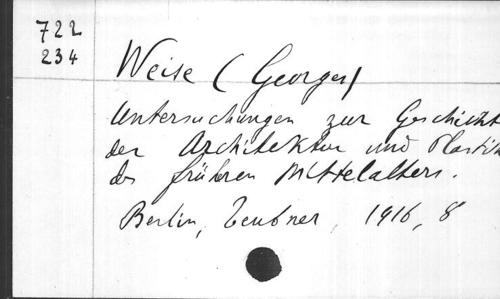 722
234
Weise (Georges)
Untersuchungen zur Geschicht
der Architektur und Plastik
des früheren Mittelalters.
Berlin, Teubner, 1916, 8